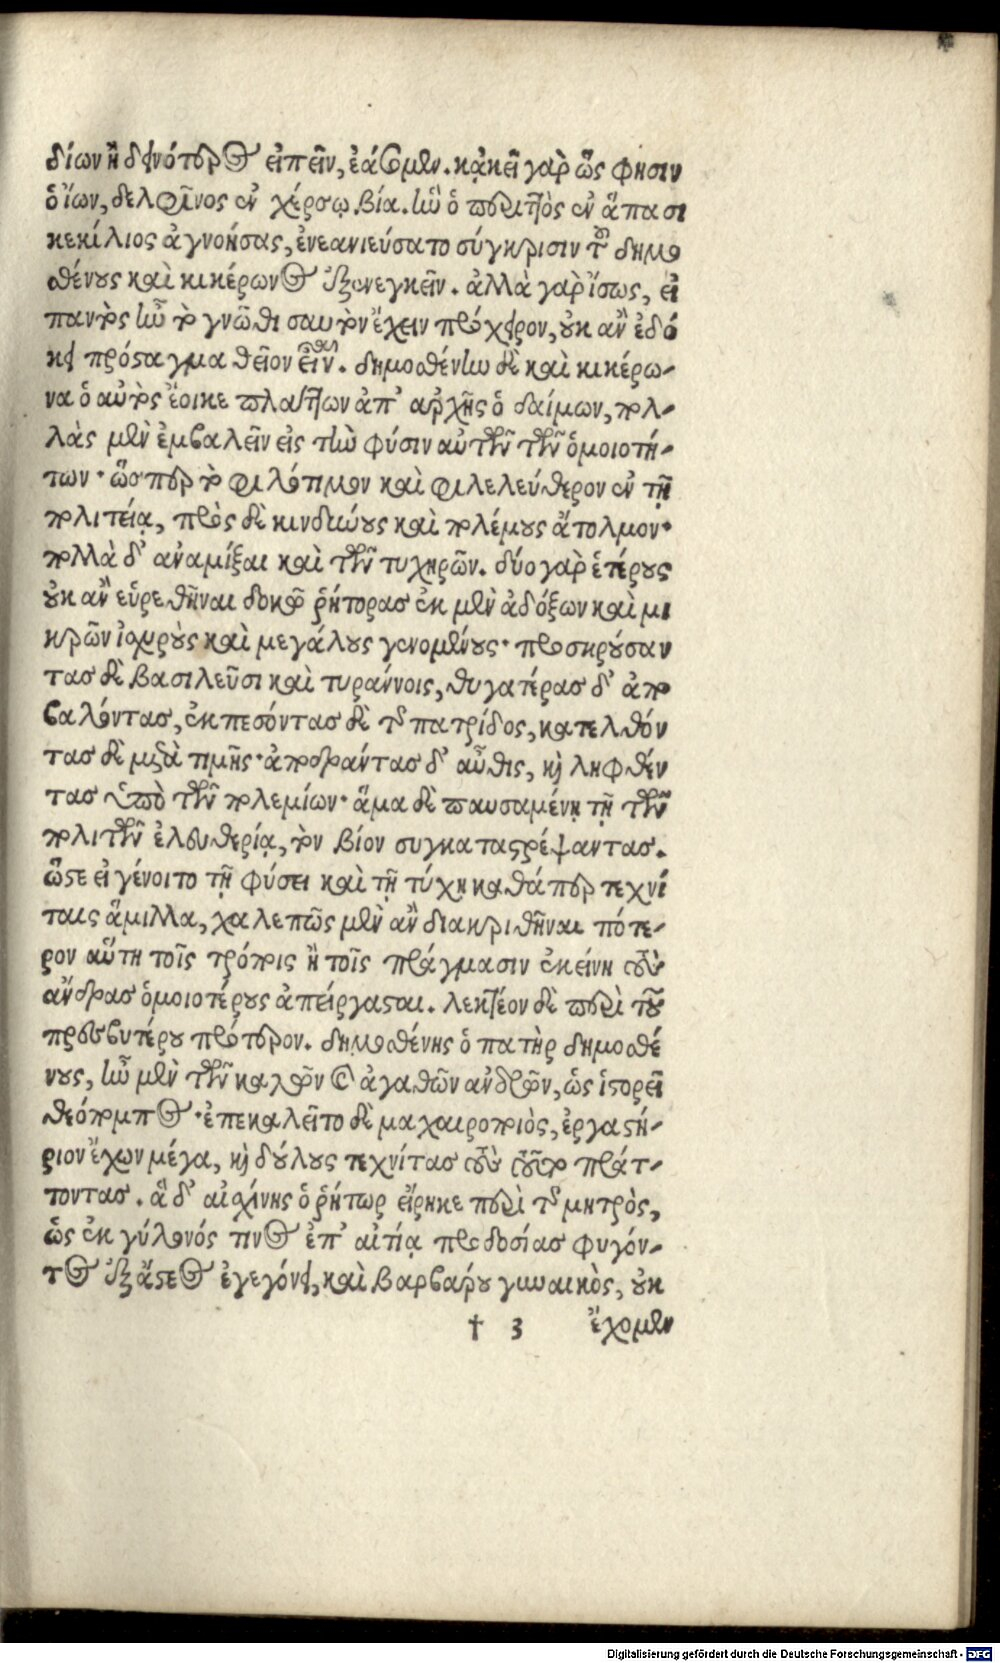 δίων ἢ δεινότερος εἰπεῖν, ἐάσομεν. κᾀκεῖ γὰρ ὥς φησιν
ὁ ἴων, δελφῖνος ἐν χέρσῳ βία. ἣν ὁ περιττὸς ἐν ἅπασι
κεκίλιος ἀγνοήσας, ἐνεανιεύσατο σύγκρισιν τοῦ δημο
σθένους καὶ κικέρωνος ἐξενεγκεῖν. ἀλλὰ γὰρ ἴσως, εἰ
παντὸς ἦν τὸ γνῶθι σαυτὸν ἔχειν πρόχειρον, οὐκ ἂν ἐδό
κει πρόσταγμα θεῖον εἶναι. δημοσθένην δὲ καὶ κικέρω-
να ὁ αὐτὸς ἔοικε πλάττων ἀπ' ἀρχῆς ὁ δαίμων, πολ-
λὰς μὲν ἐμβαλεῖν εἰς τὴν φύσιν αὐτῶν τῶν ὁμοιοτή-
των· ὥσπερ τὸ φιλότιμον καὶ φιλελεύθερον ἐν τῇ
πολιτείᾳ, πρὸς δὲ κινδύνους καὶ πολέμους ἄτολμον·
πολλὰ δ' ἀναμίξαι καὶ τῶν τυχηρῶν. δύο γὰρ ἑτέρους
οὐκ ἂν εὑρεθῆναι δοκῶ ῥήτορας ἐκ μὲν ἀδόξων καὶ μι
κρῶν ἰσχυροὺς καὶ μεγάλους γενομένους· προσκρούσαν
τας δὲ βασιλεῦσι καὶ τυράννοις, θυγατέρας δ' ἀπο
βαλόντας, ἐκπεσόντας δὲ τῆς πατρίδος, κατελθόν
τας δὲ μετὰ τιμῆς· ἀποδράντας δ' αὖθις, καὶ ληφθέν
τας ὑπὸ τῶν πολεμίων· ἅμα δὲ παυσαμένῃ τῇ τῶν
πολιτῶν ἐλευθερίᾳ, τὸν βίον συγκαταστρέψαντας.
ὥστε εἰ γένοιτο τῇ φύσει καὶ τῇ τύχῃ καθάπερ τεχνί
ταις ἅμιλλα, χαλεπῶς μὲν ἂν διακριθῆναι πότε-
ρον αὕτη τοῖς τρόποις ἢ τοῖς πράγμασιν ἐκείνη τοὺς
ἄνδρας ὁμοιοτέρους ἀπείργασται. λεκτέον δὲ περὶ τοῦ
πρεσβυτέρου πρότερον. δημοσθένης ὁ πατὴρ δημοσθέ
νους, ἦν μὲν τῶν καλῶν καὶ ἀγαθῶν ἀνδρῶν, ὡς ἱστορεῖ
θεόπομπος· ἐπεκαλεῖτο δὲ μαχαιροποιὸς, ἐργαστή-
ριον ἔχων μέγα, καὶ δούλους τεχνίτας τοὺς τοῦτο πράτ-
τοντας. ἃ δ' αἰσχίνης ὁ ῥήτωρ εἴρηκε περὶ τῆς μητρὸς,
ὡς ἐκ γύλονός τινος ἐπ' αἰτίᾳ προδοσίας φυγόν-
τος ἐξ ἄστεος ἐγεγόνει, καὶ βαρβάρου γυναικὸς, οὐκ
† 3 ἔχομεν
Digitalisierung gefördert durch die Deutsche Forschungsgemeinschaft - DFG